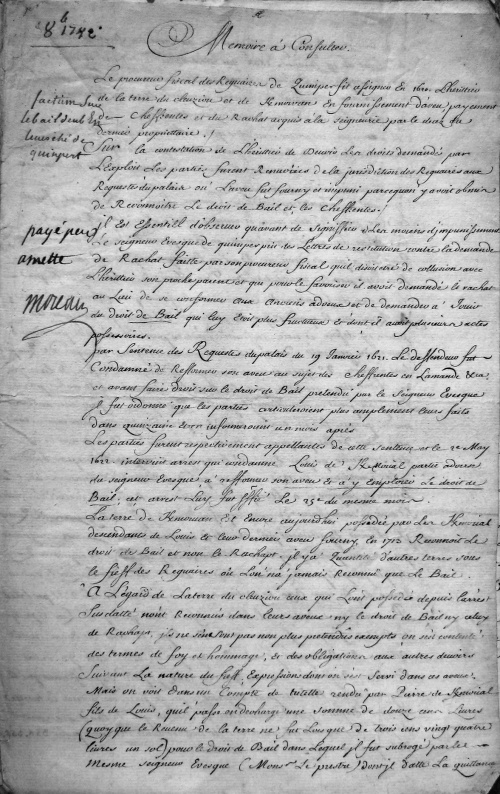 8b 1742
Memoire à Consulter
Le procureur fiscal des Reguaires de Quimper fit assigner En 1610 L'heritier
de la terre du cluziou et de Kmorvan en fournissement d'aveu payement
de Cheffrentes et du Rachat acquis a la seigneurie par le
dernier propriétaire.
factum sur
le bail sub
Sur la contestation de L'heritier de Devoir Les droits demandés par
L'Exploit Les parties furent Renvoiées de la jurisdiction des Reguaires aux
Requestes du palais où L'aveu fut fourny et impuni parceque y avoit obmis
de Reconnoitre Le droit de Bail et les Cheffrentes.
Il Est Essentiel d'observer qu'avant de signiffier Les moiens d'impunissement
Le seigneur Evesque de quimper prit des Lettres de restitution contre la demande
de Rachat faitte par son procureur fiscal qu'il disoit de collusion avec
L'heritier son proche parent et qui pour le favoriser avoit demandé le rachat
au Lieu de se conformer aux anciens adveux et de demander à Jouir
du droit de Bail qui luy Etoit plus fructueux et dont il avoit plusieurs actes
possessoires.
payé
Moreau
par Sentence des Requestes du palais du 19 Janvier 1621. Le deffendeur fut
Condamné de Refformer son aveu au sujet des Cheffrentes
et avant faire droit sur le droit de Bail pretendu par le Seigneur Evesque
Il fut ordonné que les parties articuleroient plus amplement leurs faits
dans quinzaine et en informeroient un mois après
Les parties furent respectivement appellantes de cette sentence et le 2e May
1622. intervint arrest qui condamne Louis de Kmorial partie adverse
du seigneur Evesque à reffourner son aveu et à y Employer Le droit de
Bail. et arrest Luy fut Le 25e du mesme mois.
La terre de Kmorvan Est Encore aujourdhui possedée par Les
descendans de Louis et leur dernier aveu fourny En 1712 Reconnoit Le
droit de Bail et non le Rachapt, il y a quantité d'autres terres sous
le fieff des Reguaires où L'on n'a jamais Reconnu que Le Bail
A L'égard de La terre du cluziou ceux qui L'ont possedée depuis L'arrest
Susdatté n'ont Reconnu dans leurs aveux ny le droit de Bail ny celuy
de Rachapt, ils ne se sont pas non plus pretendus exempts on s'est contenté
des termes de foy et hommage, et des obligations aux autres devoirs
Suivant La nature du fieff Expression dont on s'est Servi dans ces aveux.
Mais on voit dans un Compte de tutelle rendu par
fils de Louis, qu'il passe en decharge une somme de douze cens Livres
(quoyque le Revenu de la terre ne fut Lors que de trois cens vingt quatre
livres un sol) pour le droit de Bail dans Lequel il fut subrogé par le
mesme seigneur Evesque (Monsr Le prestre) dont il datte La quittance